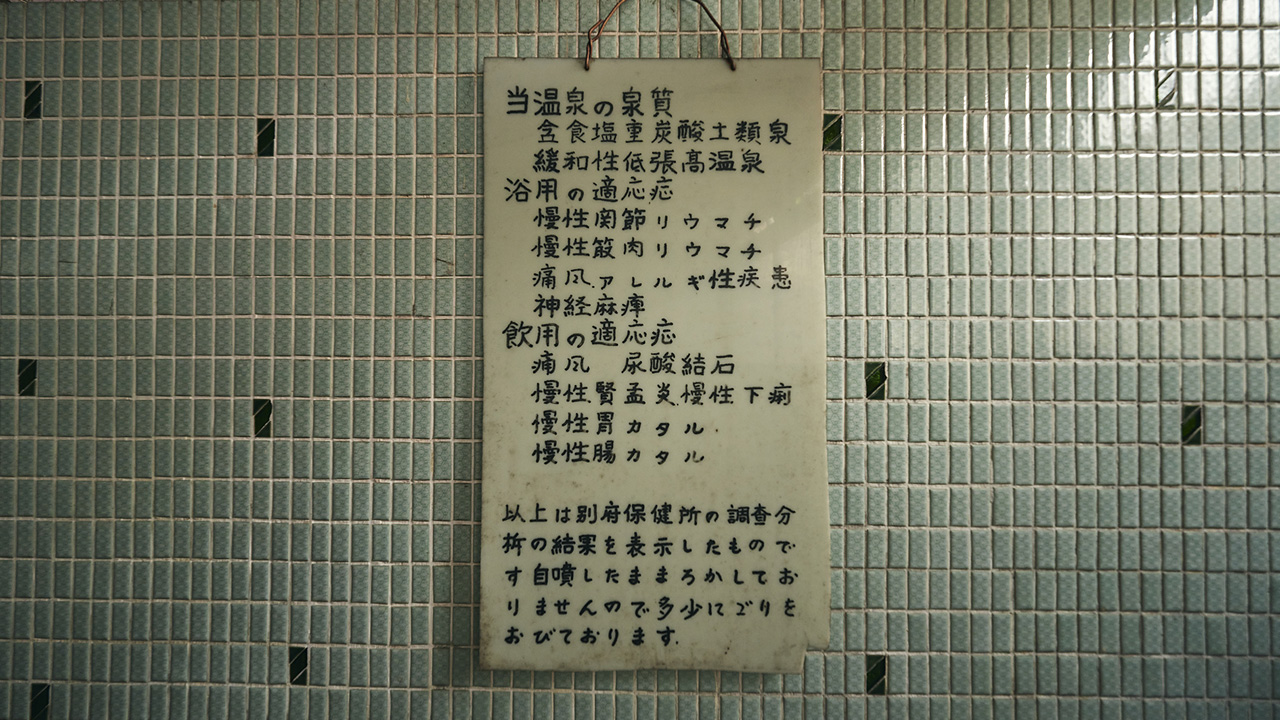 当温泉の泉質
含食塩重炭酸土類泉
緩和性低張高温泉
浴用の適応症
慢性関節リウマチ
慢性筋肉リウマチ
痛風.アレルギ性疾患
神経麻痺
飲用の適応症
痛風 尿酸結石
慢性腎盂炎.慢性下痢
慢性胃カタル.
慢性腸カタル
以上は別府保健所の調査分
析の結果を表示したもので
す自噴したままろかしてお
りませんので多少にごりを
おびております.